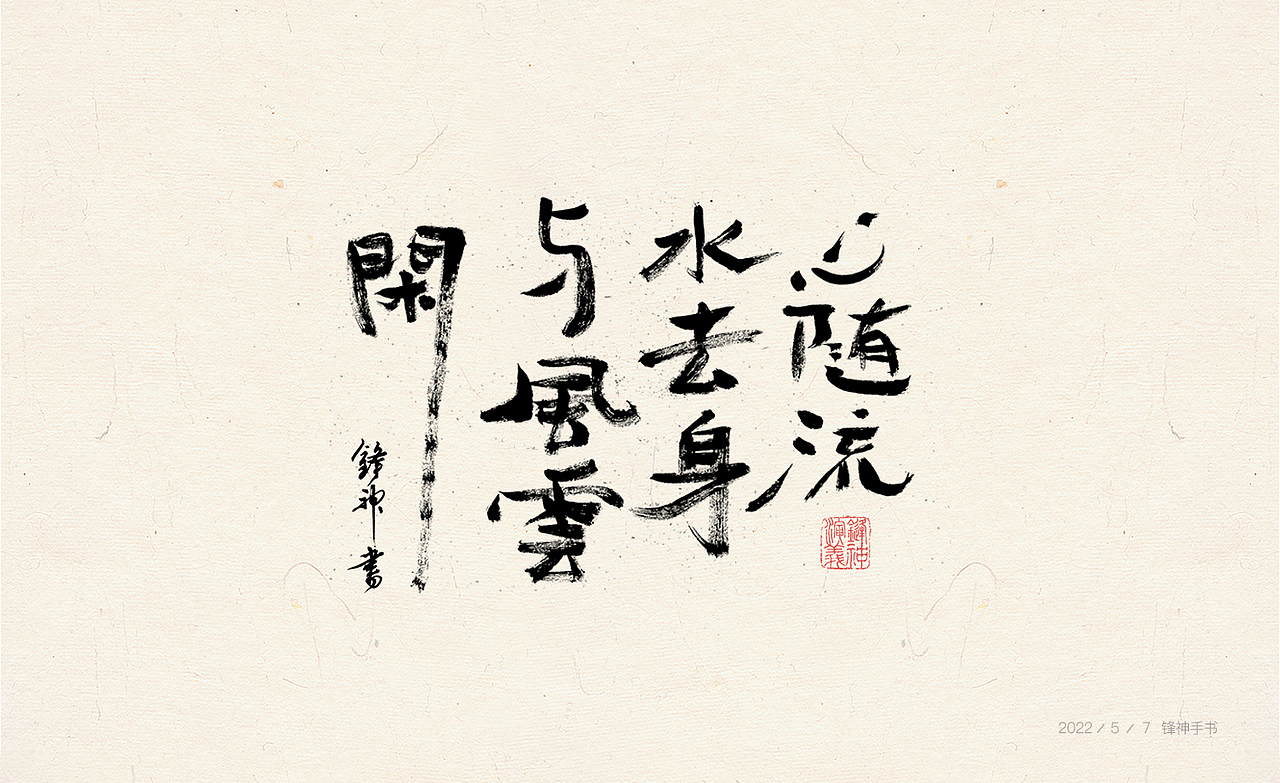 心随流
水去身
与風雲
閑
鋒神書
鋒神
演義
2022 / 5 / 7 锋神手书